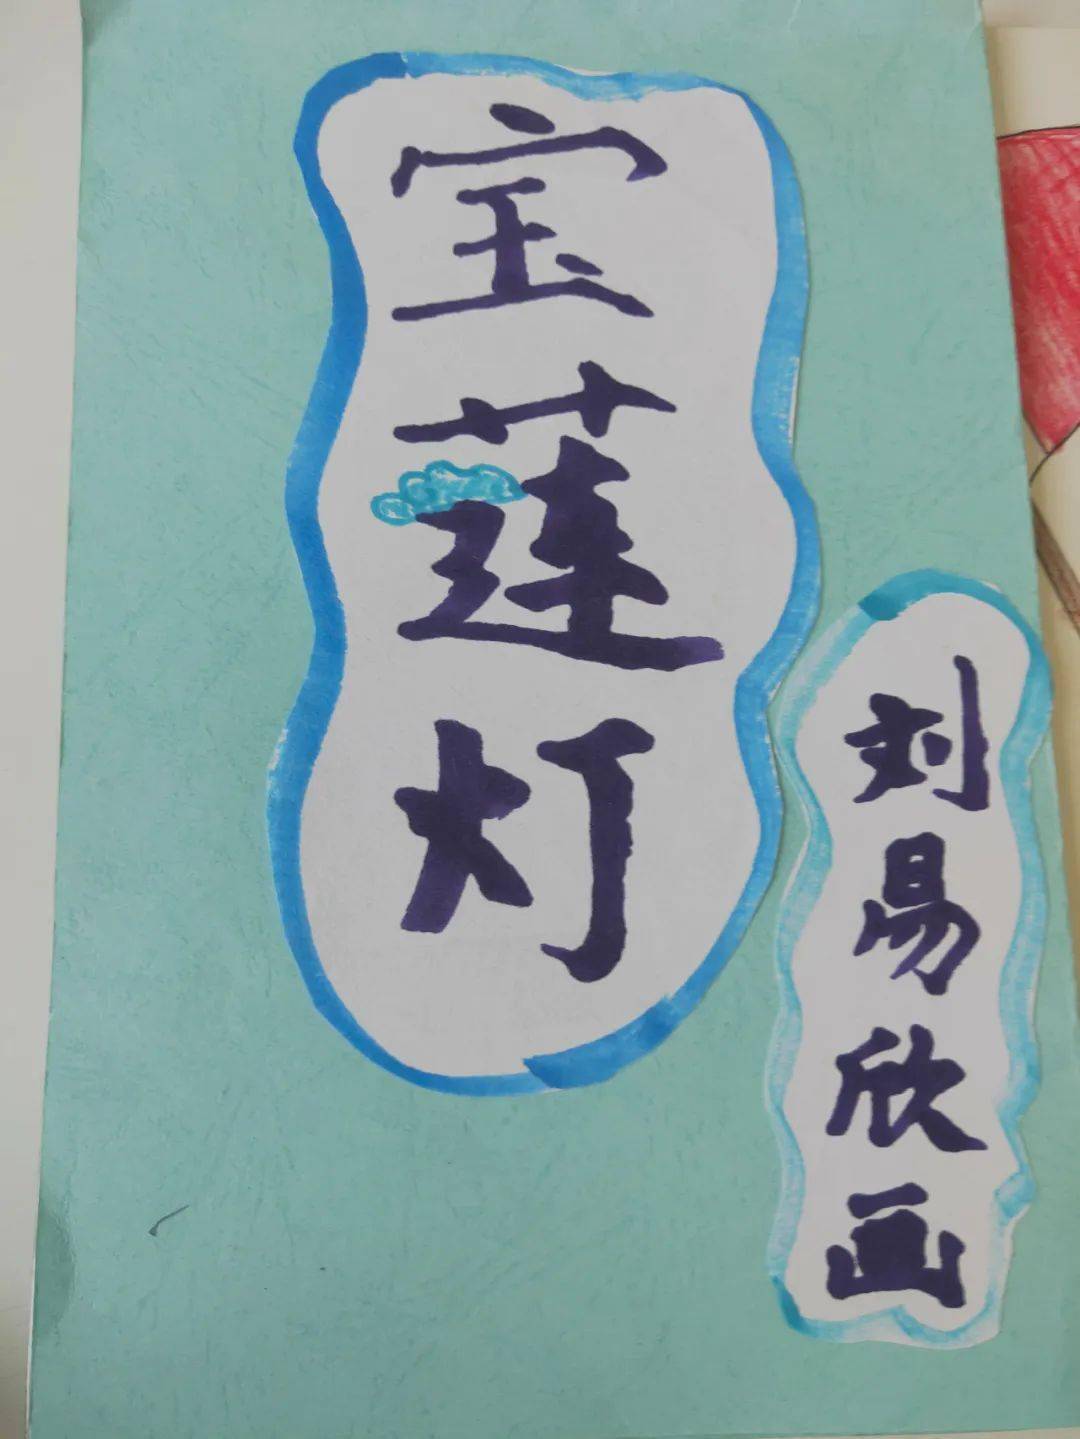 宝莲灯
刘易欣画